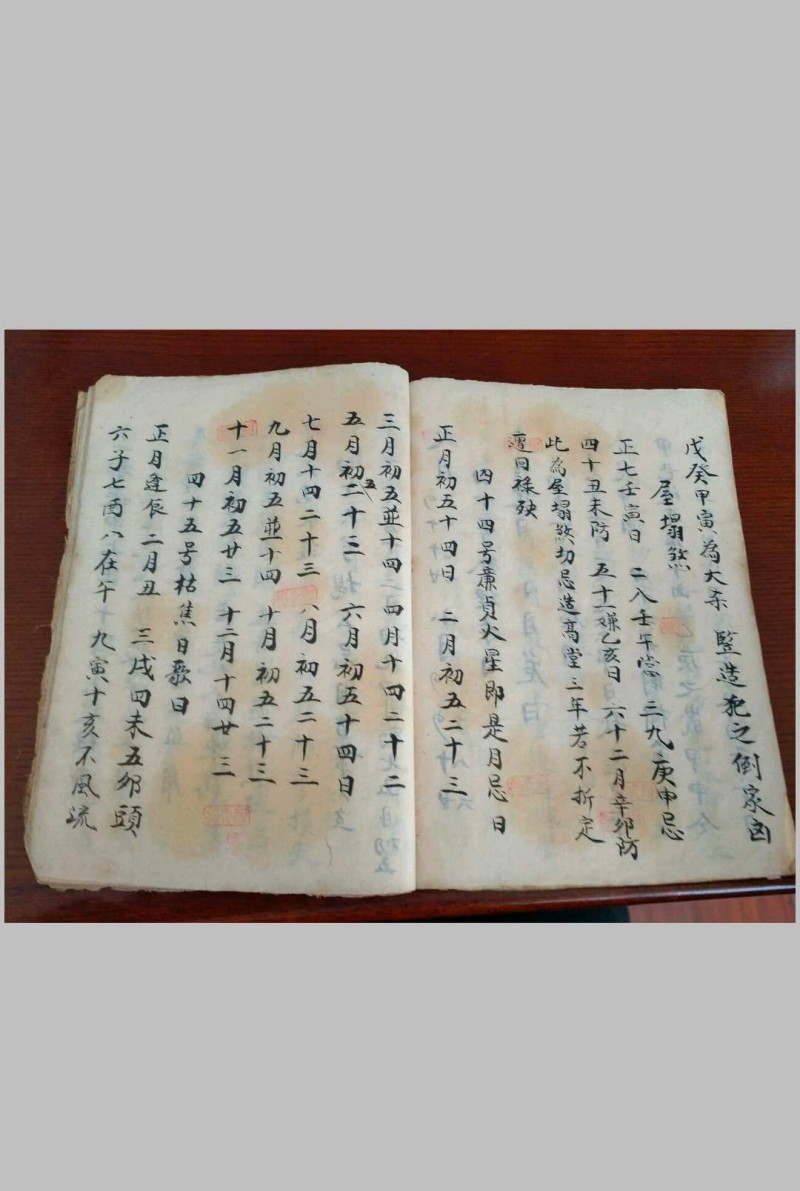 戊癸甲寅為大杀 豎造犯之倒家凶
屋塌煞
正七壬寅日 二八壬午當 三九庚申忌
四十丑未防 五十一嫌乙亥日 六十二月辛卯防
此為屋塌煞切忌造高堂三年若不折定
遭回祿殃
四十四号廉貞火星即是月忌日
正月初五十四日 二月初五二十三
三月初五並十四 四月十四二十二
五月初五二十三 六月初五十四日
七月十四二十三 八月初五二十三
九月初五並十四 十月初五二十三
十一月初五廿三 十二月十四廿三
四十五号枯焦日歌曰
正月逢辰二月丑 三戌四未五卯頭
六子七酉八在午 九寅十亥不風流